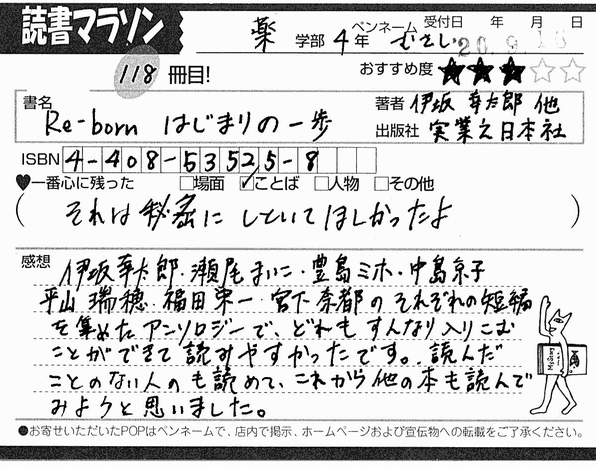 読書マラソン
薬 学部 4 年 ペンネーム むさし 受付日 年 月 日
20.9.16
118 冊目! おすすめ度 ★★★☆☆
書名 Re-born はじまりの一歩
著者 伊坂 幸太郎 他
出版社 実業之日本社
ISBN 4-408-53525-8
♥一番心に残った □場面 ☑ことば □人物 □その他
( それは秘密に しといてほしかったよ )
感想 伊坂幸太郎・瀬尾まいこ・豊島ミホ・中島京子
平山瑞穂・福田栄一・宮下奈都のそれぞれの短編
を集めたアンソロジーで、どれもすんなり入りこむ
ことができて読みやすかったです。読んだ
ことのない人のも読めて、これから他の本も読んで
みようと思いました。
●お寄せいただいたPOPはペンネームで、店内で掲示、ホームページおよび宣伝物への転載をご了承ください。